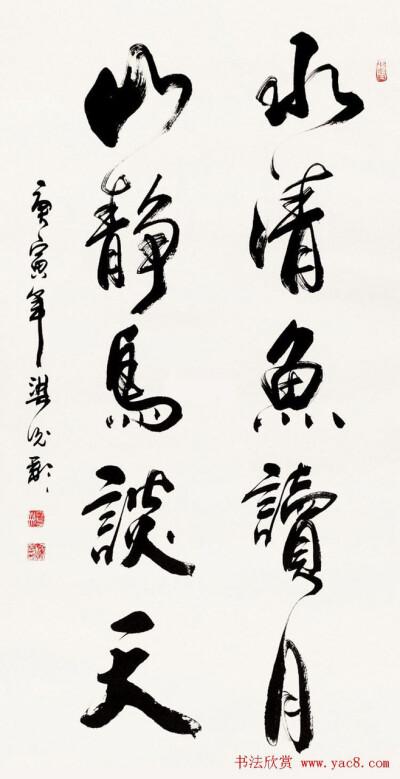 水清魚讀月
山静鳥談天
庚寅年
书法欣赏 www.yac8.com